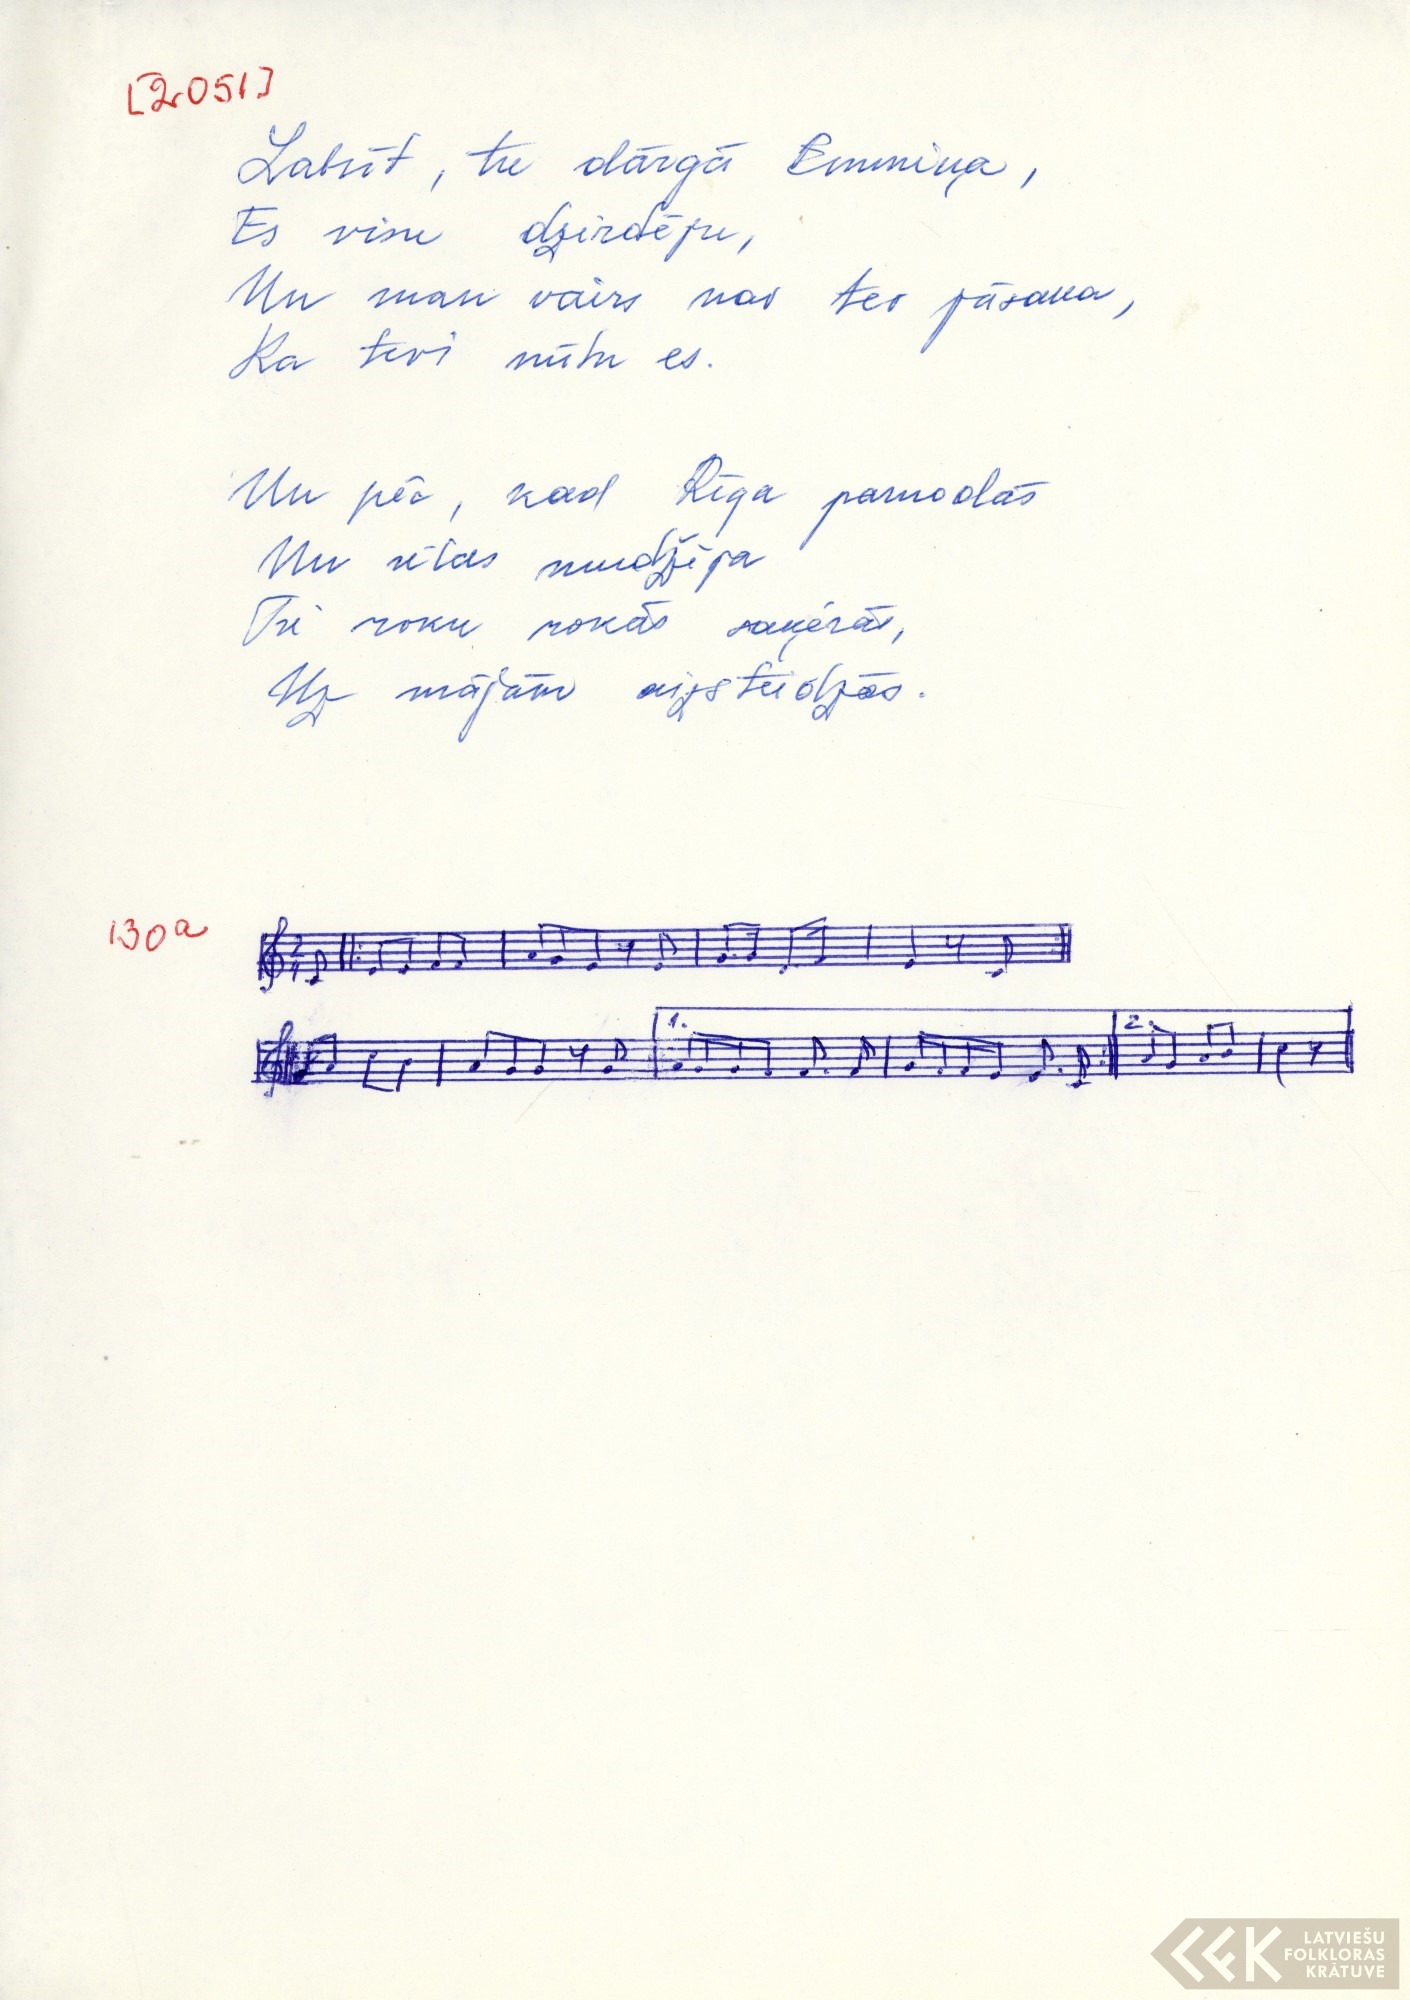 [2051]
Labrīt, tu dārgā Emmiņa,
Es visu dzirdēju,
Un man vairs nav tev jāsaka,
Ka tevi mīlu es.
Un pēc, kad Rīga pamodās
Un ielas mudžēja
Tie roku rokās saķērās,
Uz mājām aizsteidzās.
130a
2 4
1.
2.
LATVIEŠU
FOLKLORAS
KRĀTUVE